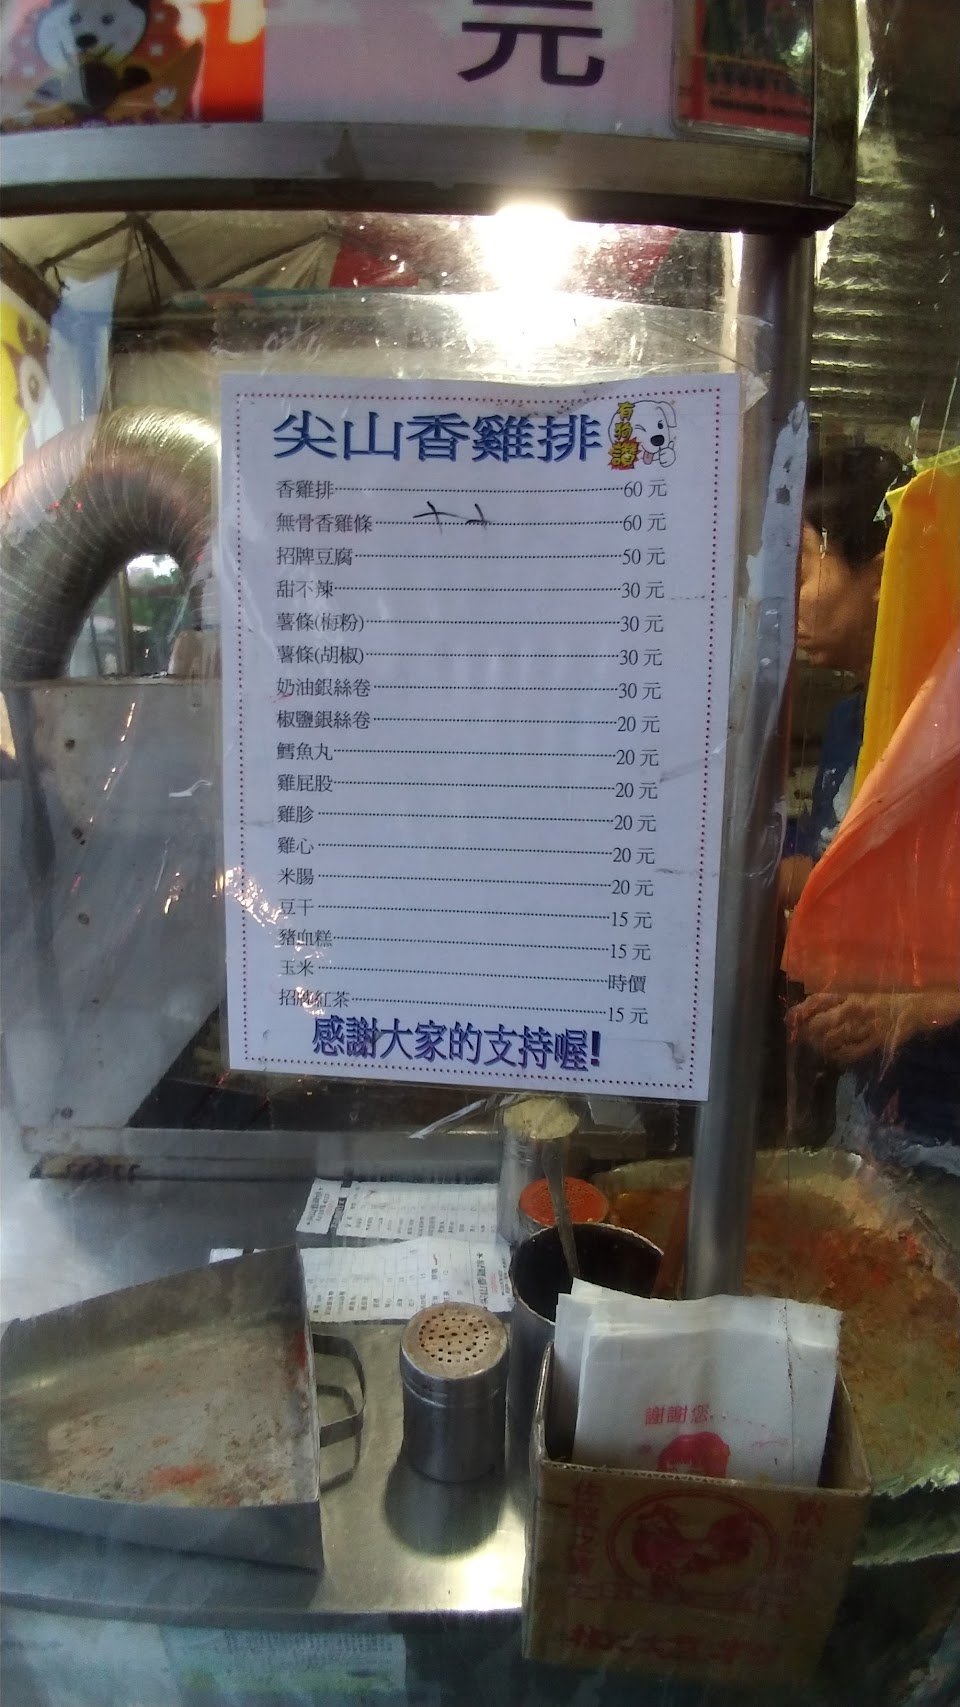 元
尖山香雞排
有狗讚
香雞排 60 元
無骨香雞條 60 元
招牌豆腐 50 元
甜不辣 30 元
薯條(梅粉) 30 元
薯條(胡椒) 30 元
奶油銀絲卷 30 元
椒鹽銀絲卷 20 元
鱈魚丸 20 元
雞屁股 20 元
雞胗 20 元
雞心 20 元
米腸 20 元
豆干 15 元
豬血糕 15 元
玉米 時價
招牌紅茶 15 元
感謝大家的支持喔!
謝謝您